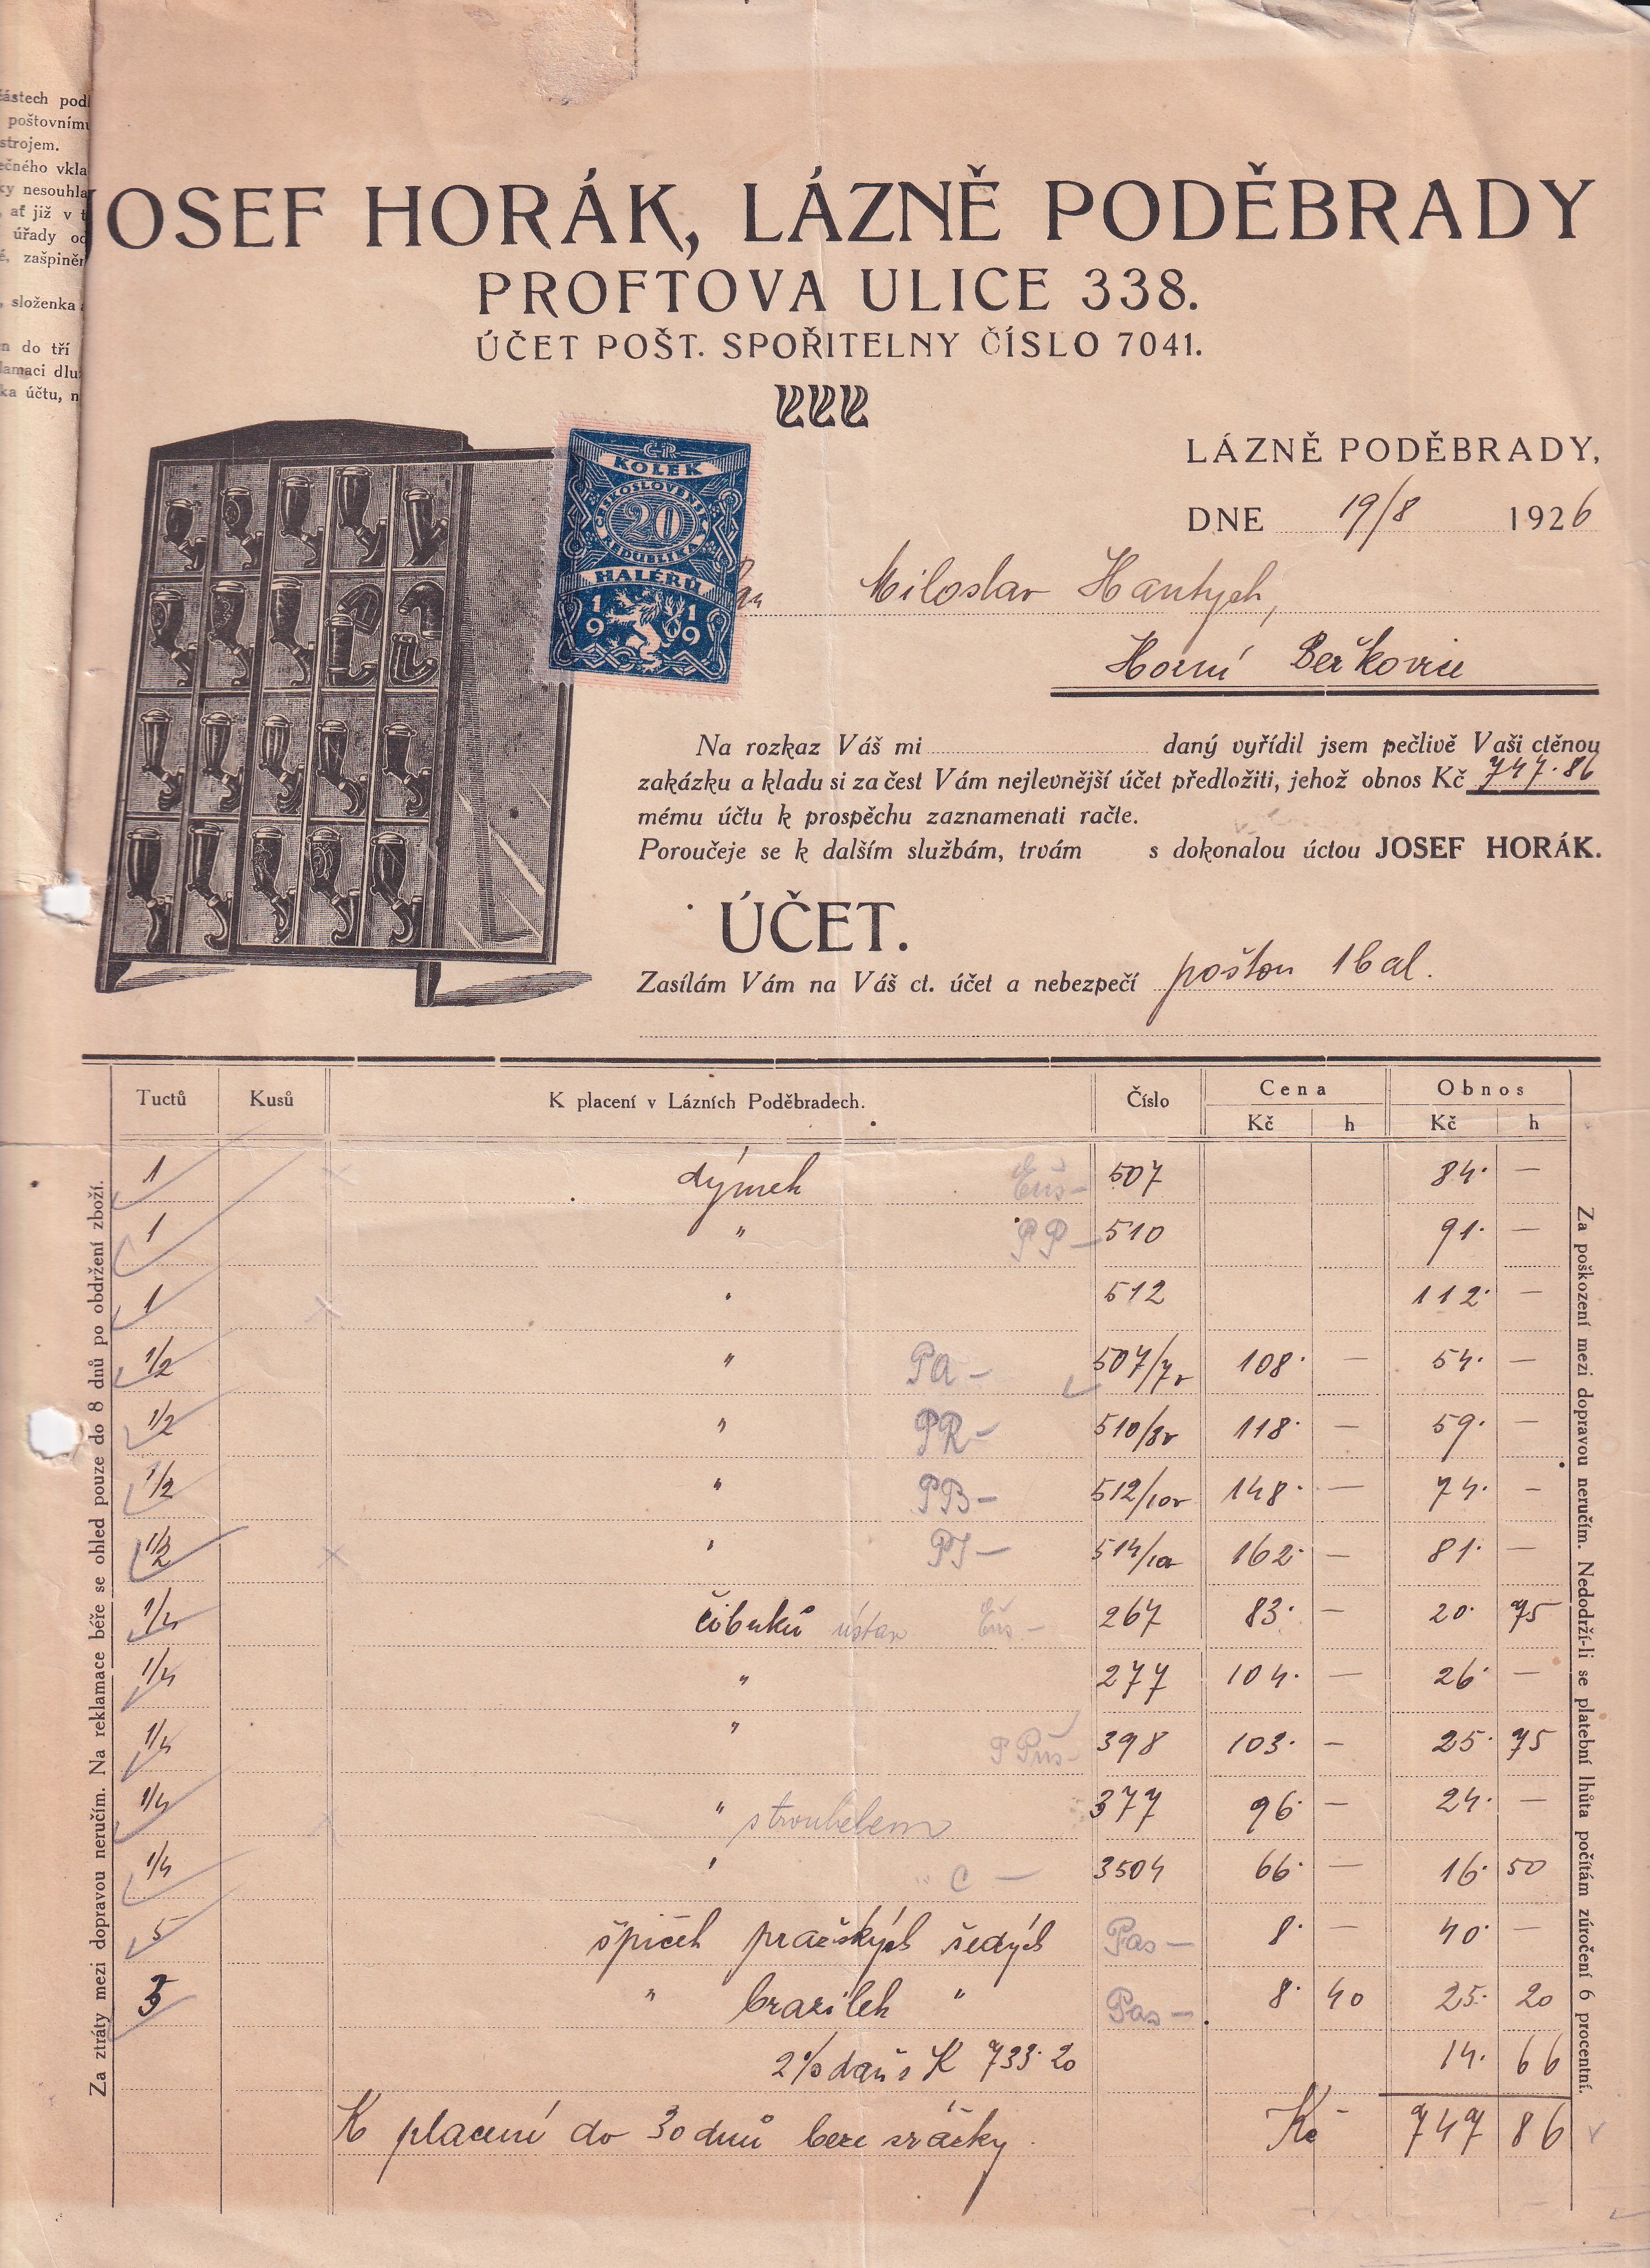 částech pod
poštovnímu
strojem.
ečného vkla
ky nesouhla
, ať již v t
úřady od
é, zašpiněn
, složenka a
n do tří
lamaci dlu
ka účtu, n
JOSEF HORÁK, LÁZNĚ PODĚBRADY
PROFTOVA ULICE 338.
ÚČET POŠT. SPOŘITELNY ČÍSLO 7041.
ČR
KOLEK
ČESKOSLOVENSKÁ
20
REPUBLIKA
HALÉŘŮ
1919
LÁZNĚ PODĚBRADY,
DNE 19/8 1926
Pan Miloslav Hantych,
Horní Beřkovice
Na rozkaz Váš mi daný vyřídil jsem pečlivě Vaši ctěnou
zakázku a kladu si za čest Vám nejlevnější účet předložiti, jehož obnos Kč 747·86
mému účtu k prospěchu zaznamenati račte.
Poroučeje se k dalším službám, trvám s dokonalou úctou JOSEF HORÁK.
ÚČET.
Zasílám Vám na Váš ct. účet a nebezpečí poštou 1 bal.
Tuctů Kusů K placení v Lázních Poděbradech. Číslo Cena Obnos
Kč h Kč h
1 dýmek 507 84·—
1 " PP— 510 91·—
1 " 512 112·—
1/2 " PA— 507/7r 108·— 54·—
1/2 " PR— 510/8r 118·— 59·—
1/2 " PB— 512/10r 148·— 74·—
1/2 " PJ— 514/10r 162·— 81·—
1/4 čibuků 267 83·— 20·75
1/4 " 277 104·— 26·—
1/4 " 398 103·— 25·75
1/4 " s troubelem 377 96·— 24·—
1/4 " C— 3504 66·— 16·50
5 špiček pražských šedých Pas— 8·— 40·—
3 " brazilek " Pas— 8·40 25·20
2% daň s K 733·20 14·66
K placení do 30 dnů beze srážky. Kč 747 86
Za ztráty mezi dopravou neručím. Na reklamace béře se ohled pouze do 8 dnů po obdržení zboží.
Za poškození mezi dopravou neručím. Nedodrží-li se platební lhůta počítám zúročení 6 procentní.